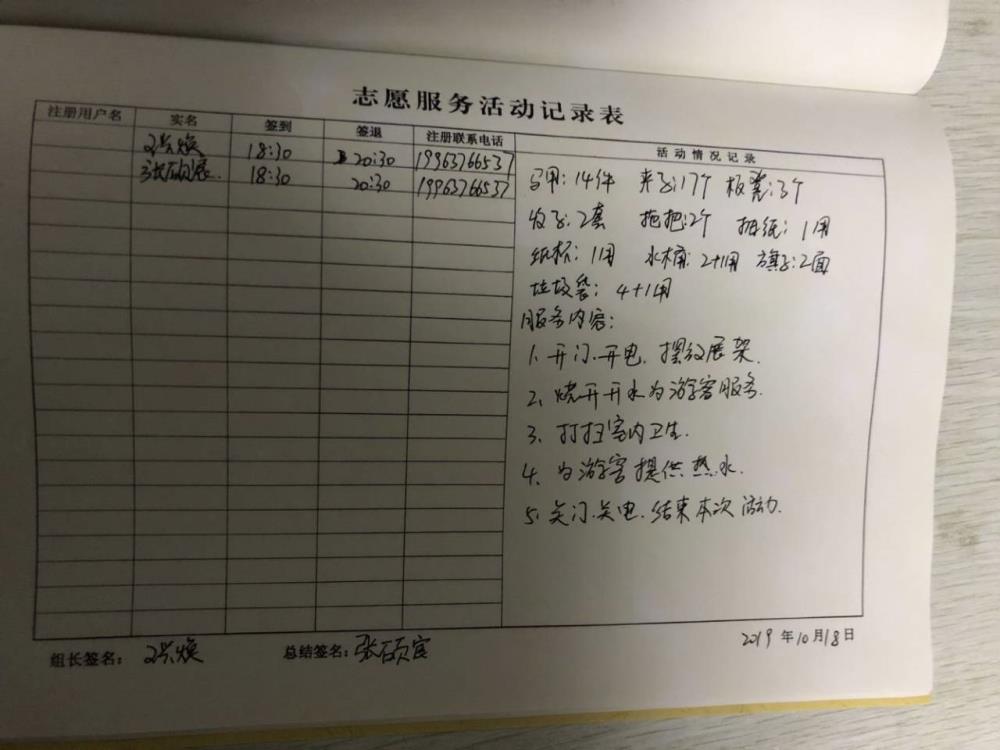 志愿服务活动记录表
注册用户名 实名 签到 签退 注册联系电话 活动情况记录
18:30 20:30 19963766537
18:30 20:30 19963766537
马甲:14件 夹子:17个 板凳:3个
2套 拖把:2个 抽纸:1用
纸杯:1用 水桶:2+1用 旗子:2面
垃圾袋:4+1用
服务内容:
1、开门、开电、摆放展架.
2、烧开开水为游客服务.
3、打扫室内卫生.
4、为游客提供热水.
5、关门、关电、结束本次活动.
2019年10月18日
组长签名: 总结签名:张硕宸